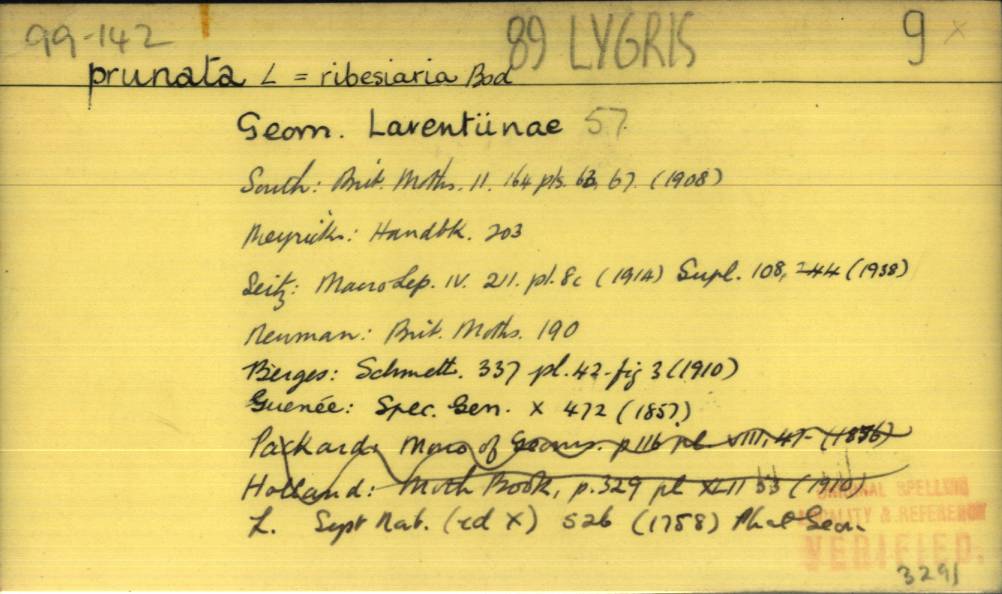 99-142 89 LYGRIS 9 x
prunata L = ribesiaria Bod
Geom. Larentiinae 57
South: Brit. Moths. 11. 164 pls. 63, 67. (1908)
Meyrick: Handbk. 203
Seitz: Macrolep. IV. 211. pl. 8c (1914) Supl. 108, 244 (1938)
Newman: Brit. Moths. 190
Berges: Schmett. 337 pl. 42-fig 3 (1910)
Guenée: Spec. Gen. X 472 (1857)
Packard: Mono of Geoms. p116 pl VIII, 47- (1876)
Holland: Moth Book, p.329 pl XLII 53 (1910)
L. Syst Nat. (ed X) 526 (1758) Phal Geom.
ORIGINAL SPELLING
LOCALITY & REFERENCE
VERIFIED.
3291